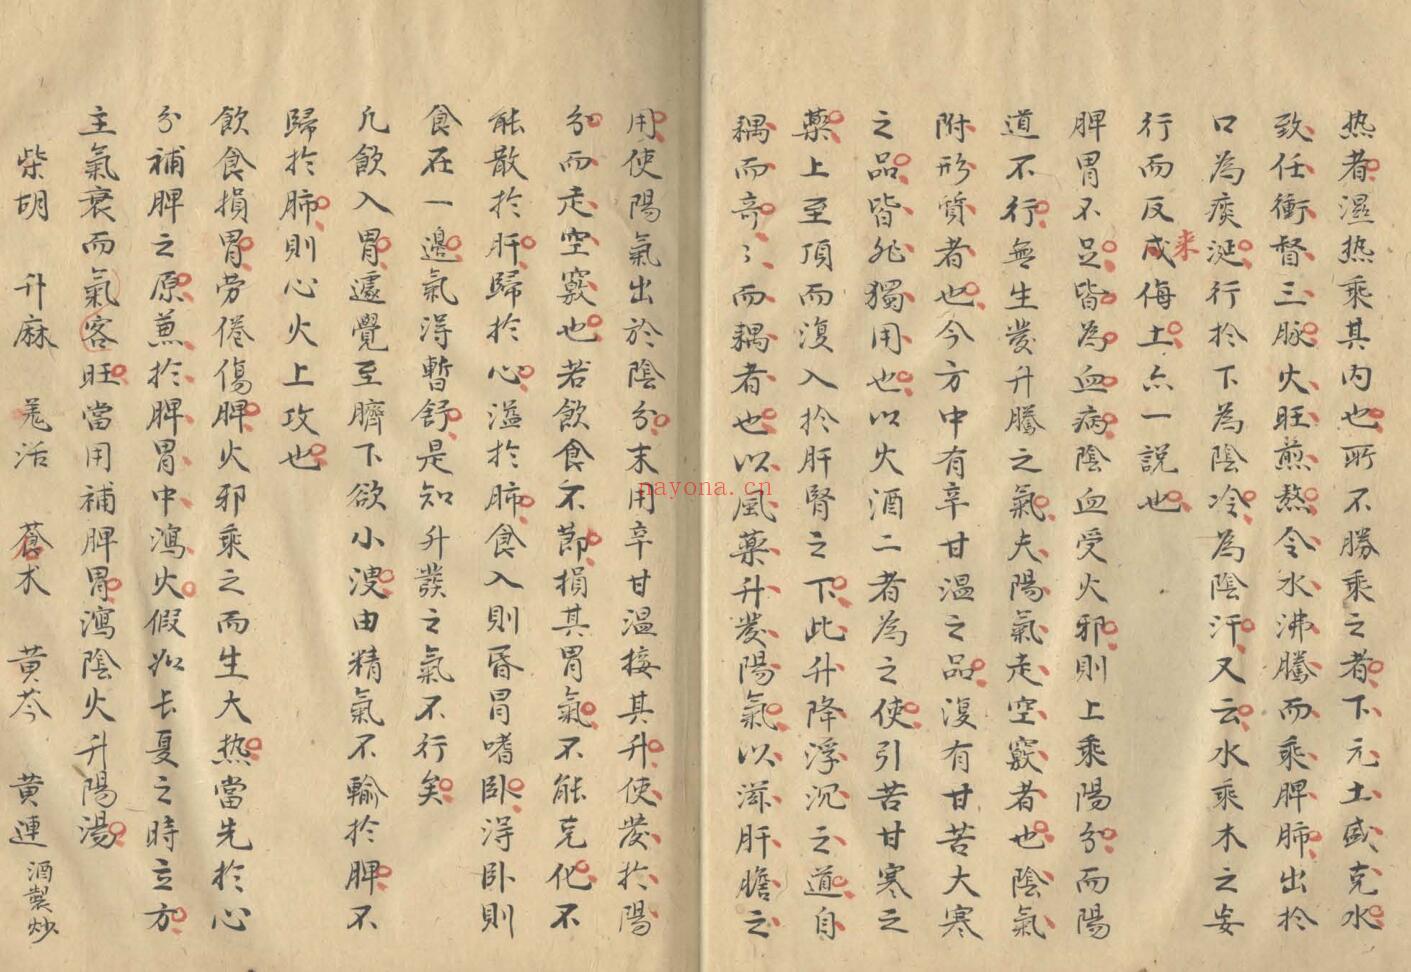 热者濕热乘其内也所不勝乘之者下元土盛克水
致任衝督三脉火旺煎熬令水沸騰而乘脾肺出扵
口為痰涎行扵下為陰冷為陰汗又云水乘木之妄
行而反來侮土亦一説也
脾胃不足皆為血病陰血受火邪則上乘陽分而陽
道不行無生發升騰之氣夫陽氣走空竅者也陰氣
附形質者也今方中有辛甘温之品復有甘苦大寒
之品皆非獨用也以火酒二者為之使引苦甘寒之
藥上至頂而復入扵肝腎之下此升降浮沉之道自
耦而竒竒而耦者也以風藥升發陽氣以滋肝膽之
用使陽氣出於陰分末用辛甘温接其升使發扵陽
分而走空竅也若飲食不節損其胃氣不能克化不
能散扵肝歸扵心溢扵肺食入則昏冒嗜卧得卧則
食在一邊氣得暫舒是知升發之氣不行矣
凡飲入胃遽覺至臍下欲小溲由精氣不輸扵脾不
歸扵肺則心火上攻也
飲食損胃勞倦傷脾火邪乘之而生大热當先扵心
分補脾之原葸扵脾胃中瀉火假如长夏之時立方
主氣衰而客氣旺當用補脾胃瀉陰火升陽湯
柴胡 升麻 羗活 蒼术 黄芩 黄連酒製炒
nayona.cn